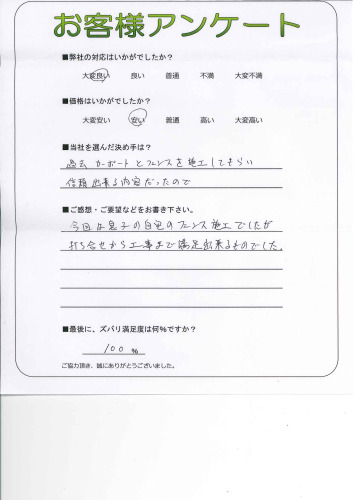 お客様アンケート
■弊社の対応はいかがでしたか？
大変良い 良い 普通 不満 大変不満
■価格はいかがでしたか？
大変安い 安い 普通 高い 大変高い
■当社を選んだ決め手は？
過去 カーポートとフェンスを施工してもらい
信頼出来る内容だったので
■ご感想・ご要望などをお書き下さい。
今回は息子の自宅のフェンス施工でしたが
打ち合せから工事まで満足出来るものでした。
■最後に、ズバリ満足度は何％ですか？
100 %
ご協力頂き、誠にありがとうございました。